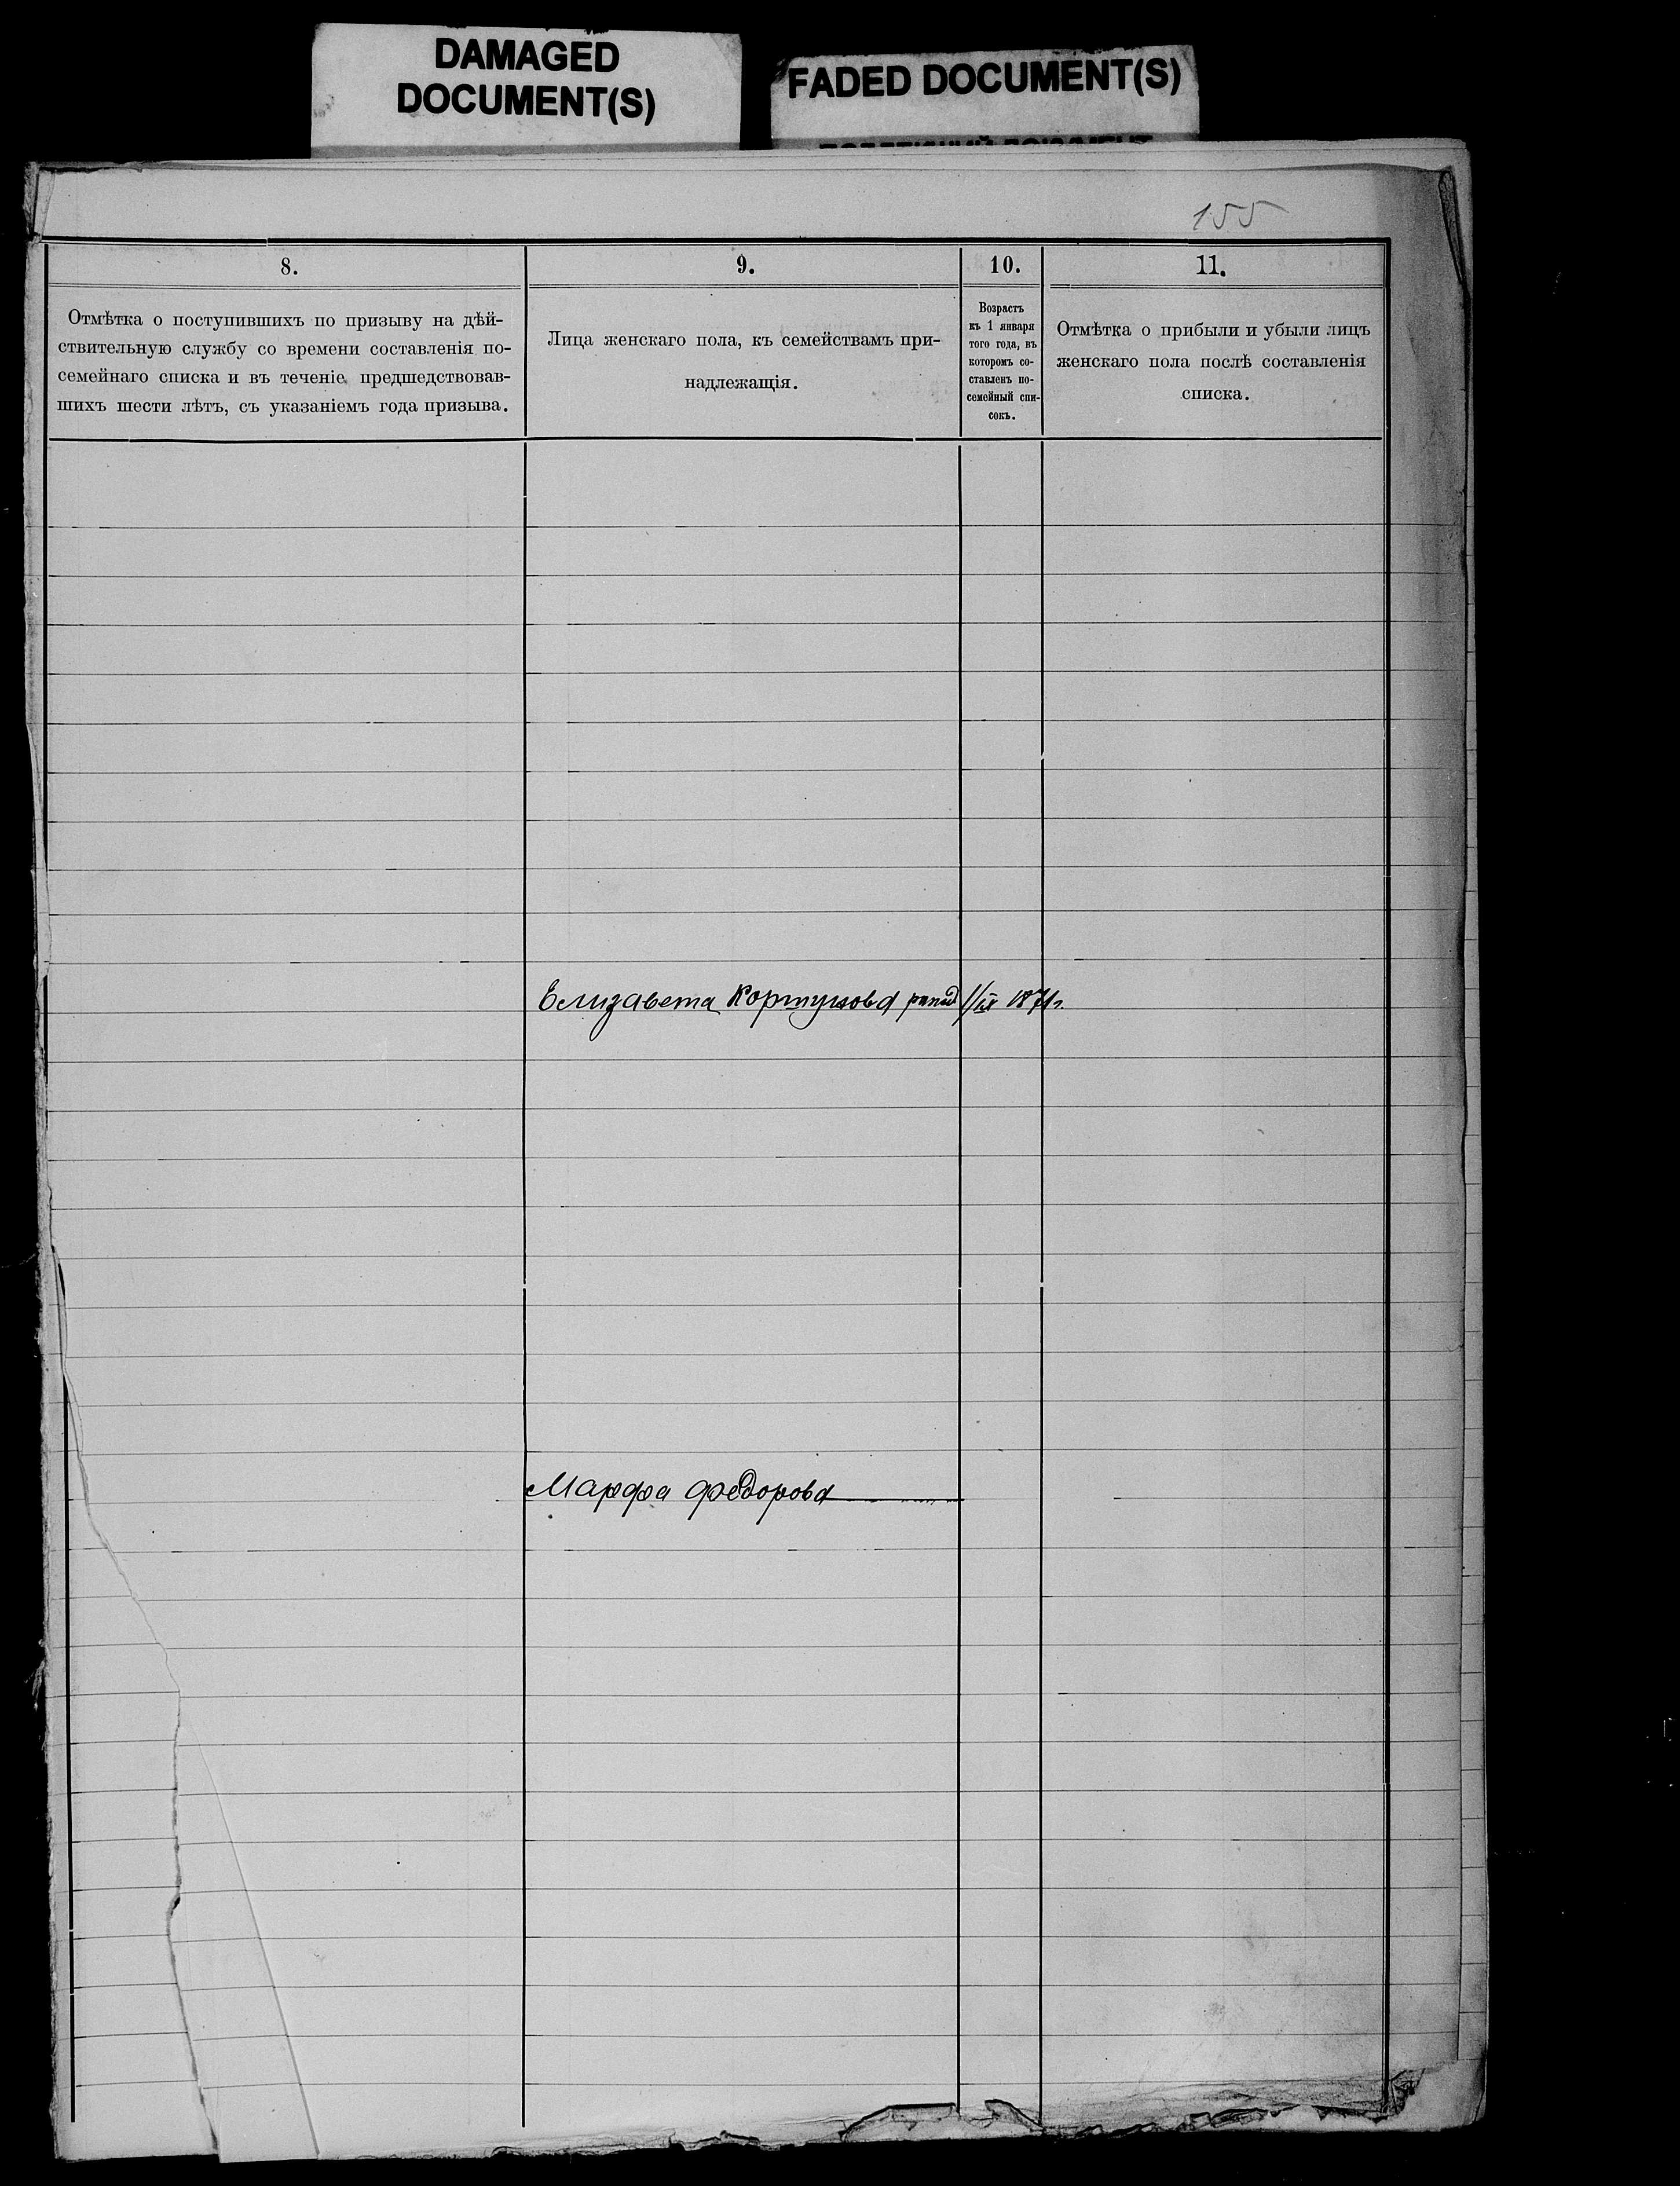 DAMAGED
DOCUMENT(S)
FADED DOCUMENT(S)
155
8.
Отмѣтка о поступившихъ по призыву на дѣй-
ствительную службу со времени составленія по-
семейнаго списка и въ теченіе предшедствовав-
шихъ шести лѣтъ, съ указаніемъ года призыва.
9.
Лица женскаго пола, къ семействамъ при-
надлежащія.
10.
Возрастъ
къ 1 января
того года, въ
которомъ со-
ставленъ по-
семейный спи-
сокъ.
11.
Отмѣтка о прибыли и убыли лицъ
женскаго пола послѣ составленія
списка.
Елизавета 1871г.
Марфа Федорова